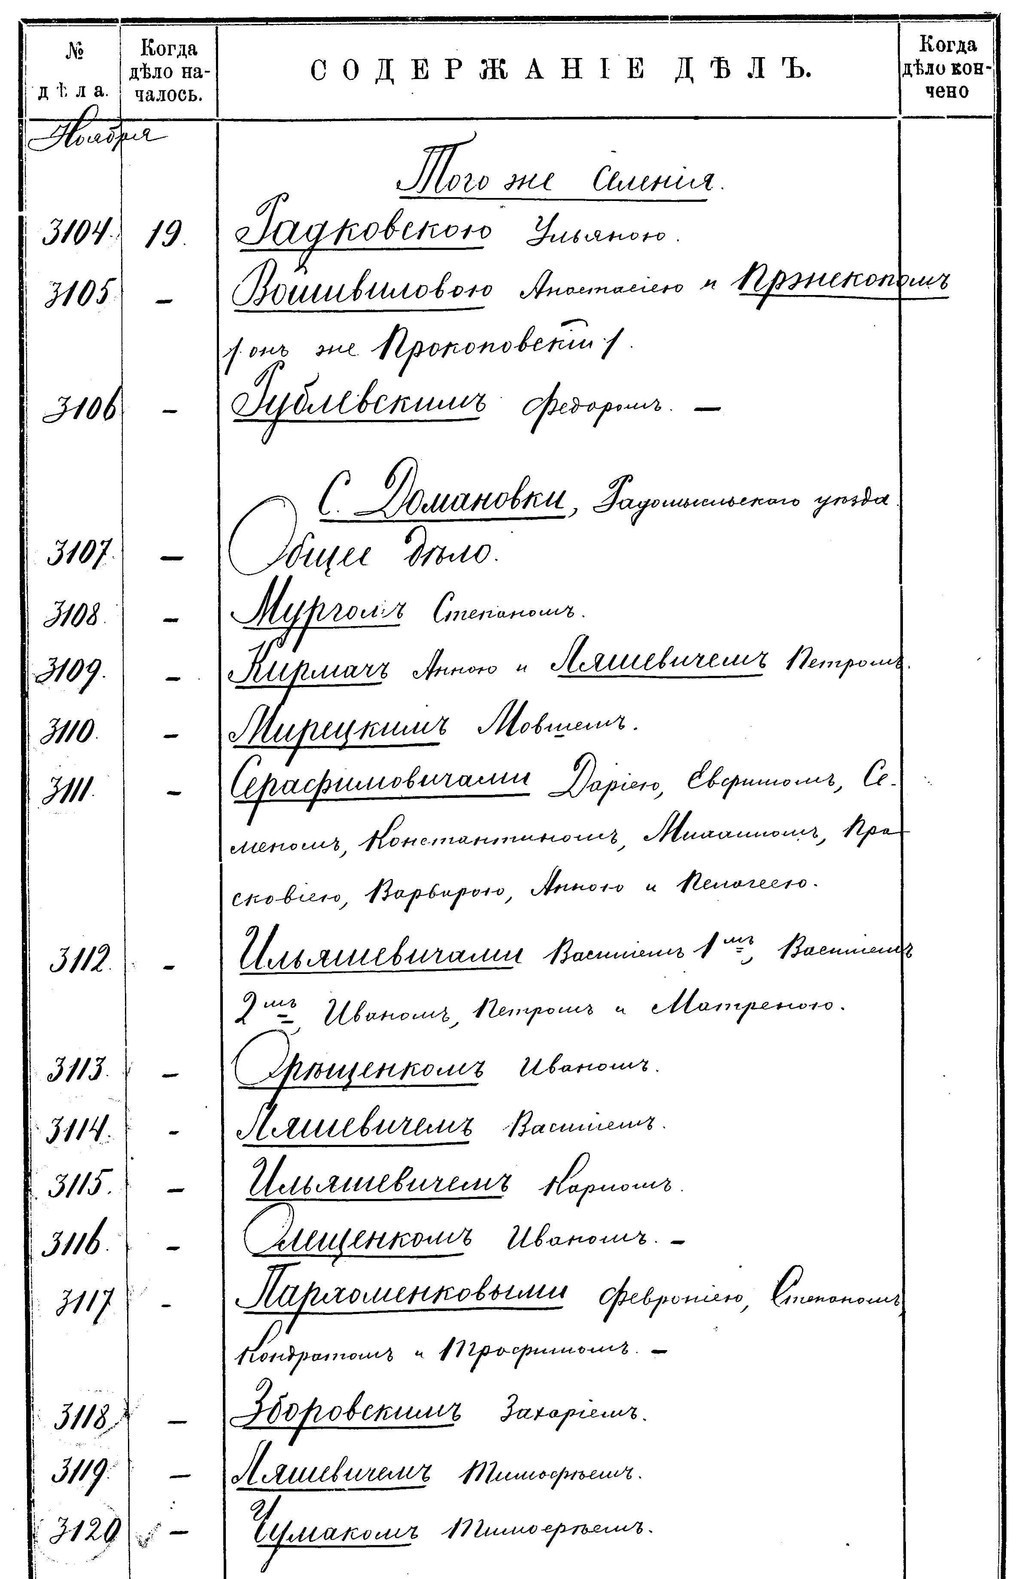 № дѣла.
Когда дѣло началось.
СОДЕРЖАНІЕ ДѢЛЪ.
Когда дѣло кончено
Ноября
Того же Селенія.
3104. 19. Радковскою Ульяною.
3105 – Вошивиловою Анастасіею и Пржекопомъ
/онъ же Прокоповскій/.
3106 – Рублевскимъ Федоромъ. –
С. Домановки, Радомысльского уѣзда
3107. – Общее дѣло.
3108. – Мургомъ Степаномъ.
3109. – Кирмачъ Анною и Ляшевичемъ Петромъ.
3110. – Мирецкимъ Мовшемъ.
3111. – Серафимовичами Даріею, Евфимомъ, Се-
меномъ, Константиномъ, Михаиломъ, Пра-
сковіею, Варварою, Анною и Пелагеею.
3112. – Ильяшевичами Василіемъ 1мъ, Василіемъ
2мъ, Иваномъ, Петромъ и Матреною.
3113. – Орѣщенкомъ Иваномъ.
3114. – Ляшевичемъ Василіемъ.
3115. – Ильяшевичемъ Карпомъ.
3116. – Олещенкомъ Иваномъ. –
3117 – Пархоменковыми Февроніею, Степаномъ,
Кондратомъ и Трофимомъ. –
3118 – Зборовскимъ Захаріемъ.
3119. – Ляшевичемъ Тимофѣемъ.
3120 – Чумакомъ Тимофѣемъ.